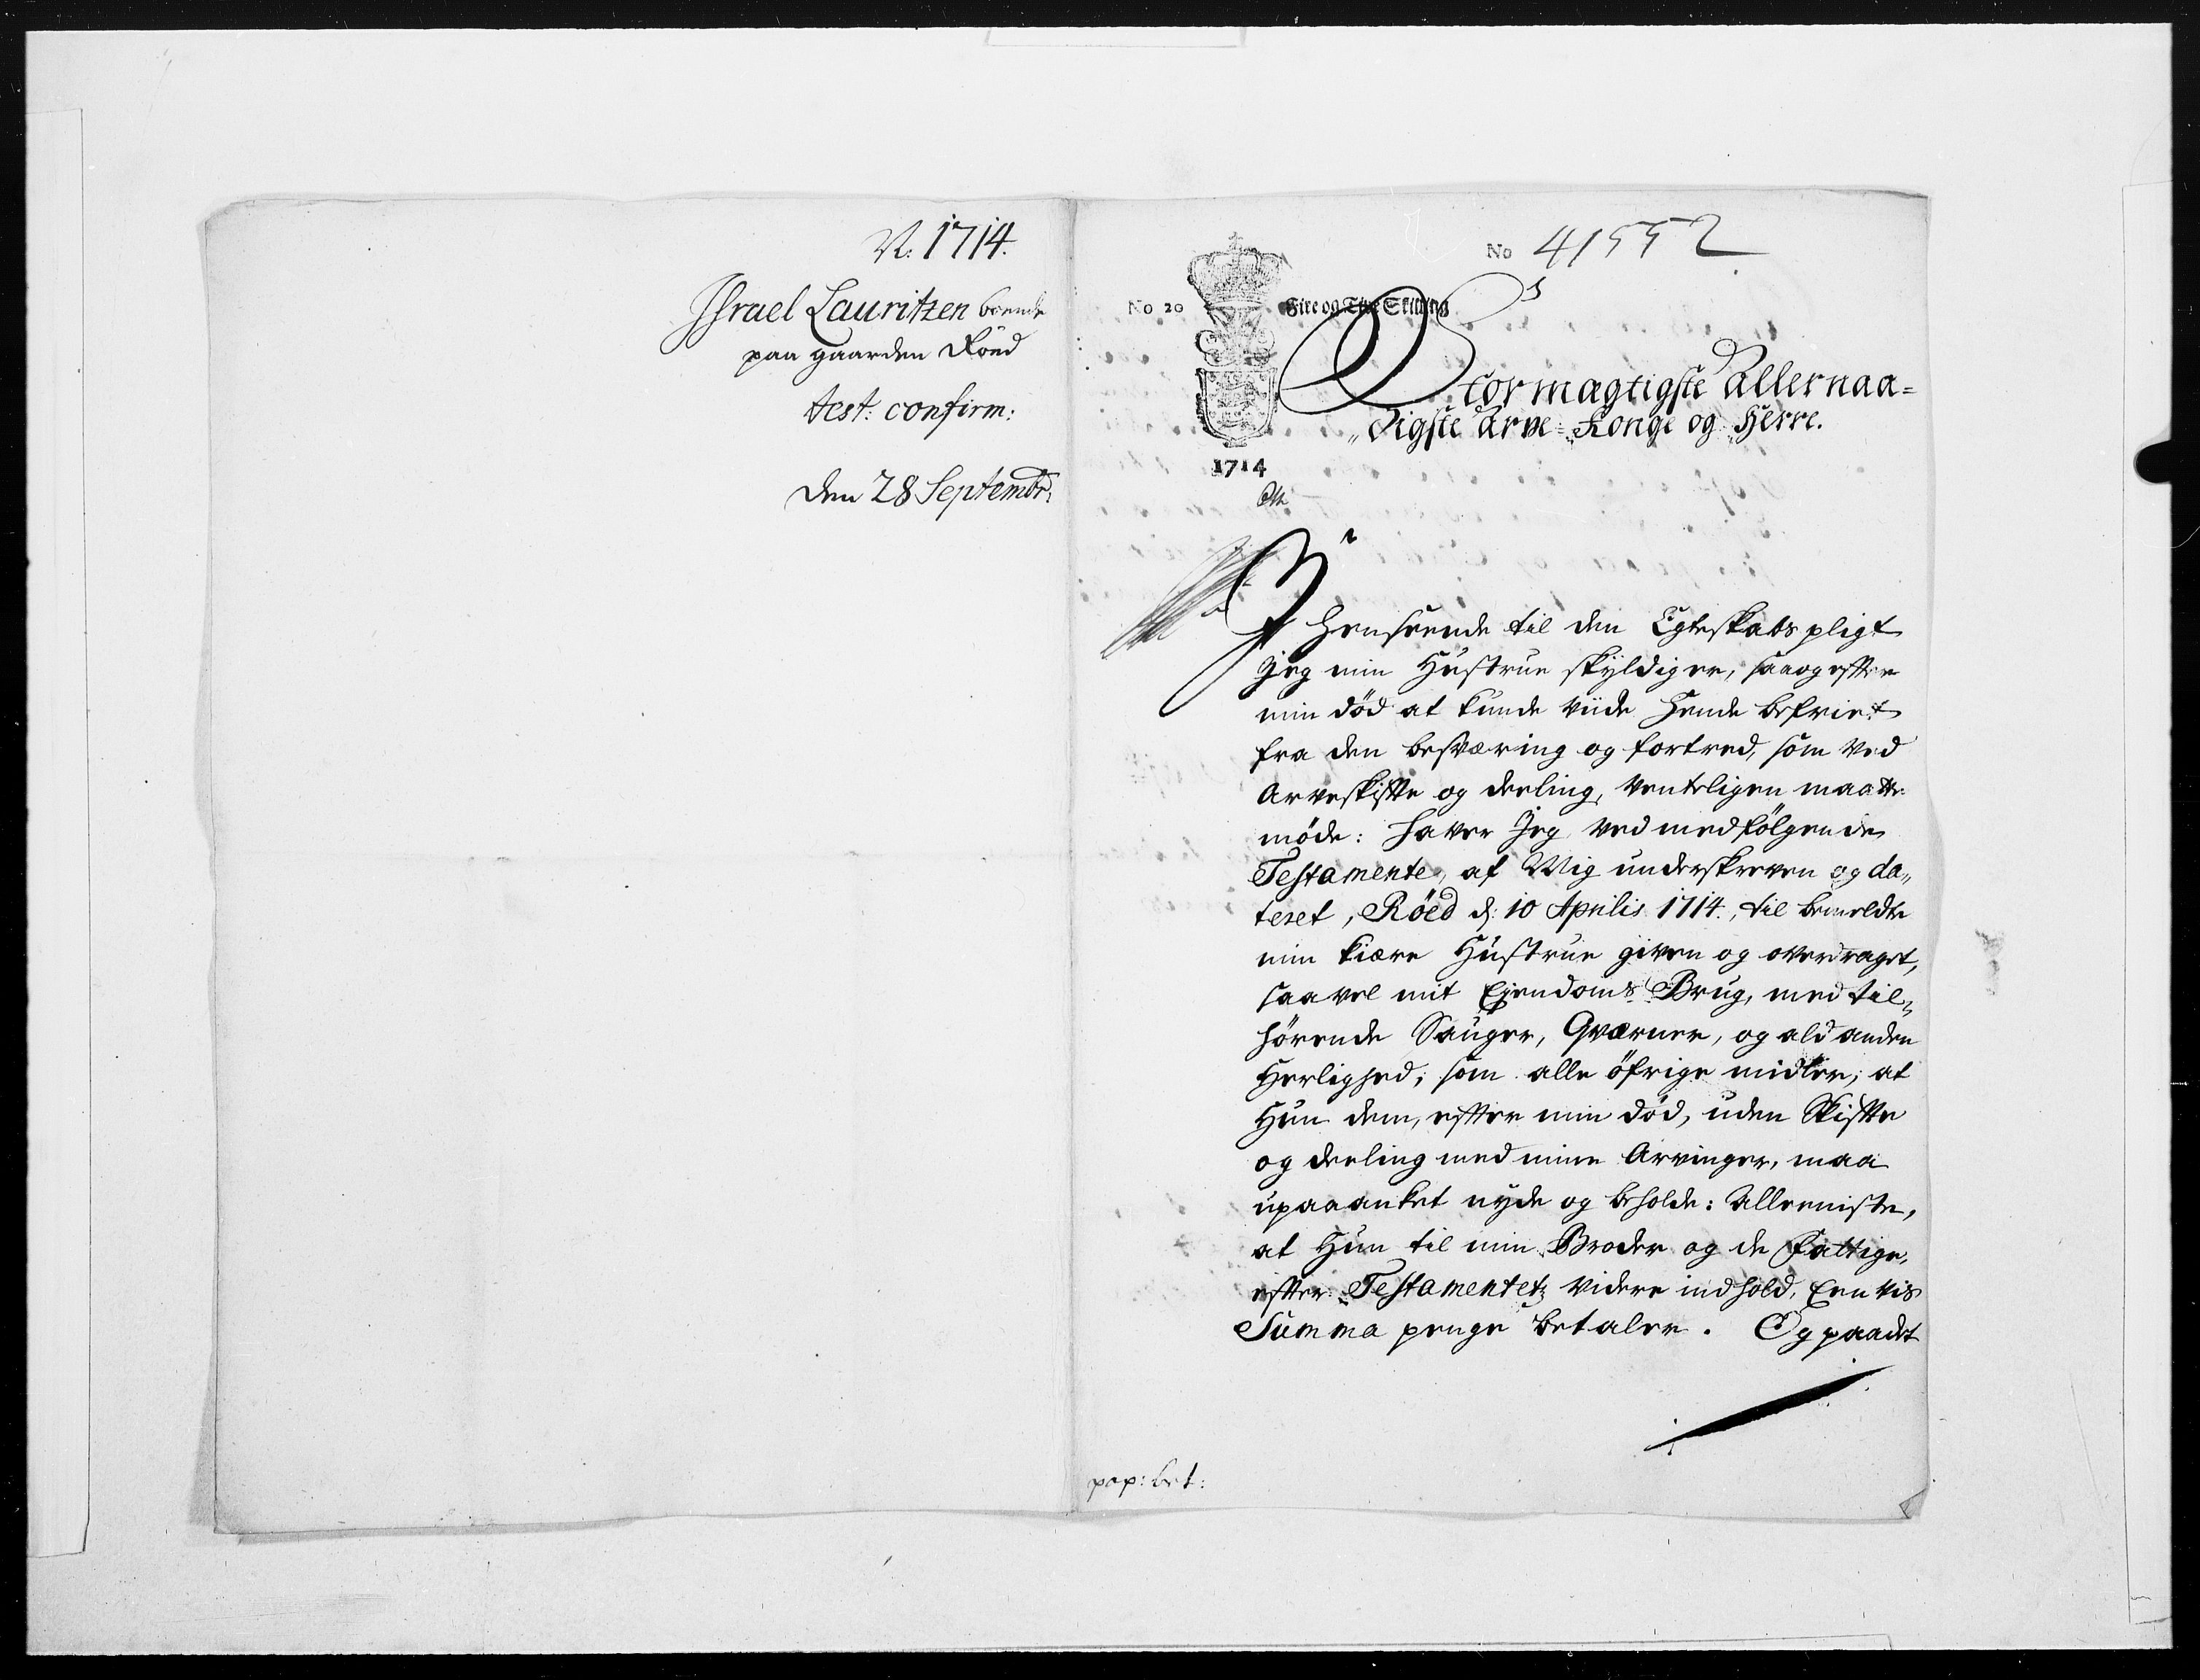 N: 1714.
Jsrael Lauritzen boende
paa gaarden Röed
test: confirm:
den 28 Septembr:
No 41552
No 20
Fire og Tive Skilling
1714
Stormægtigste Allernaa=
digste Arve=Konge og Herre.
I Henseende til den Egteskabs pligt
Jeg min Hustrue skyldig er, saa og effter
min död at kunde viide Hende befriet
fra den besværing og fortred, som ved
Arveskiffte og deeling, venteligen maatte
möde: haver Jeg ved medfölgende
Testamente, af Mig underskreven og da„
teret, Röed d: 10 Aprilis 1714., til bemeldte
min kiære Hustrue given og overdraget,
saavel mit Ejendoms Brug, med til„
hörende Sauger, Qværner, og ald anden
Herlighed, som alle öfrige midler, at
Hun dem, effter min död, uden Skiffte
og deeling med mine Arvinger, maa
upaaanket nyde og beholde: Alleeniste,
at Hun til min Broder og de Fattige,
effter Testamentetz videre indhold, Een vis
Summa penge betaler. Og paa det
pap: bet: